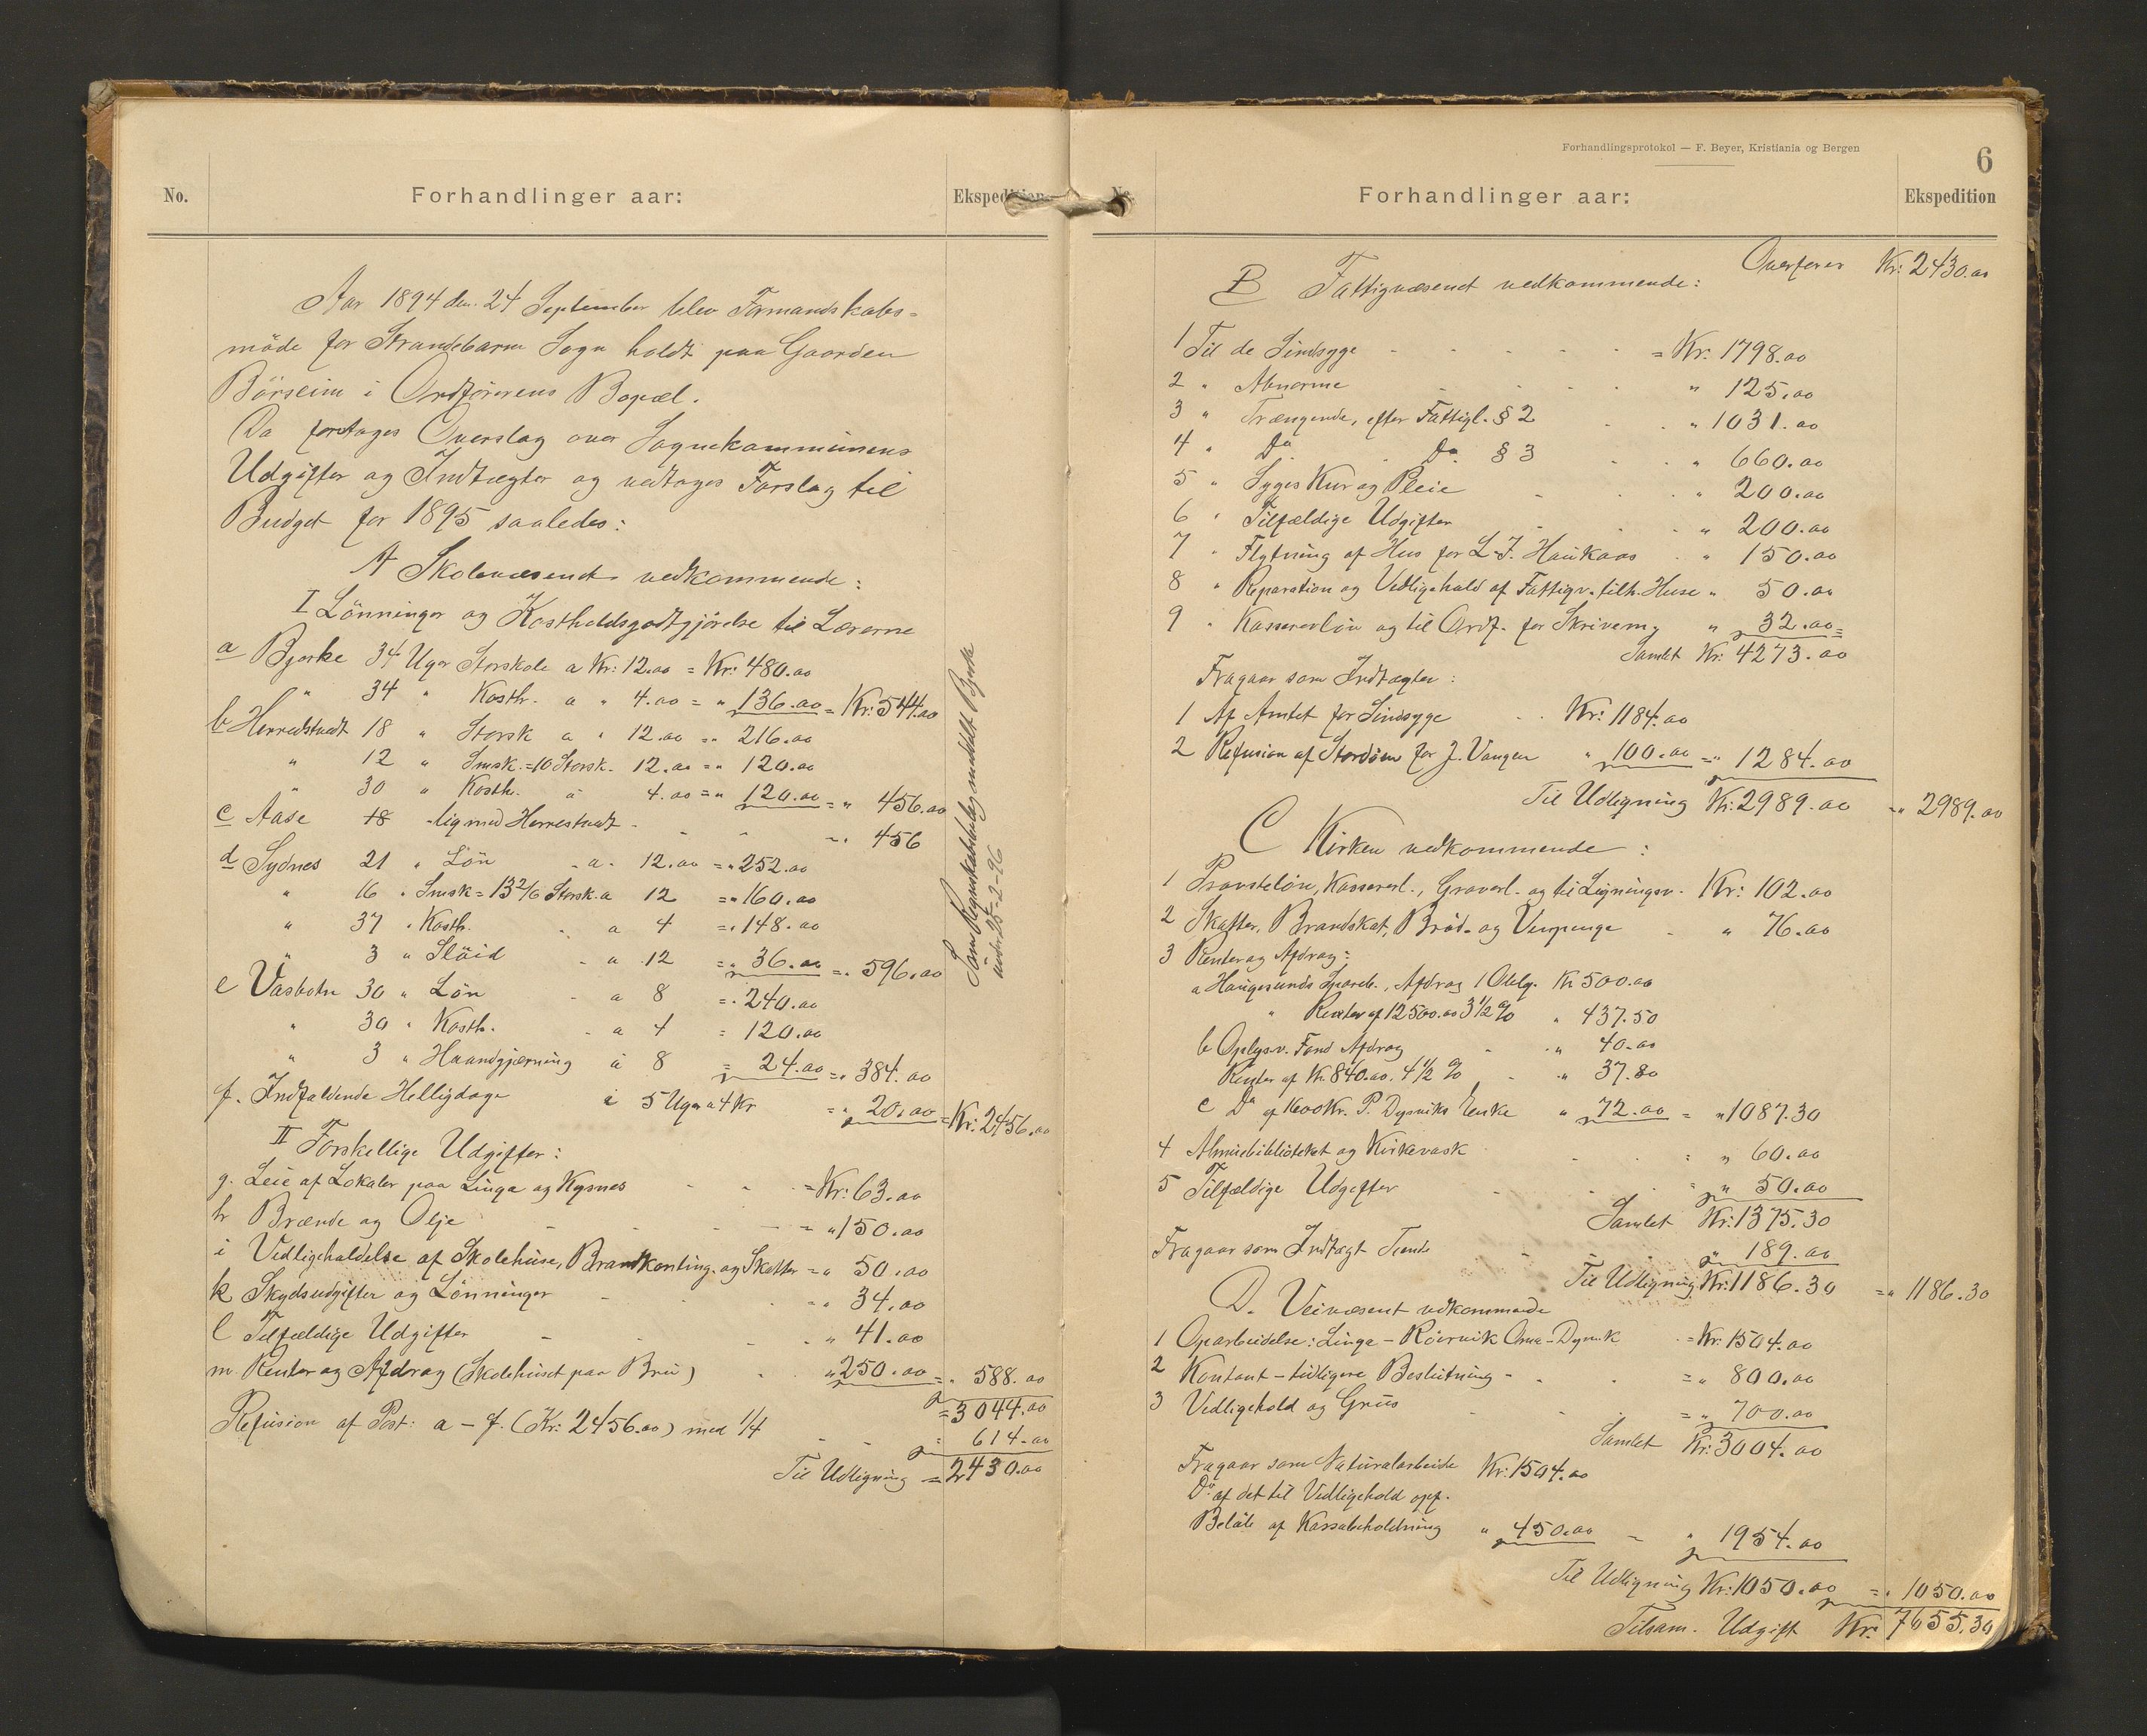 No.
Forhandlinger aar:
Aar 1894 den 24 September blev Formandskabs=
möde for Strandebarm Sogn holdt paa Gaarden
Börseim i Ordförerens Bopæl.
Da foretages Overslag over Sognekommunens
Udgifter og Indtægter og vedtages Forslag til
Budget for 1895 saaledes:
A Skolevæsenet vedkommende:
I Lönninger og Kostholdsgodtgjörelse til Lærerne
a Bjerke 34 Uger Storskole a Kr: 12.00 = Kr: 480.00
" 34 " Kosth. a " 4.00 = " 136.00 = Kr: 544.00
b Herrestvedt 18 " Storsk a " 12.00 = " 216.00
" 12 " Smsk. = 10 Storsk. 12.00 = " 120.00
" 30 " Kosth. a 4.00 = " 120.00 = " 456.00
c Aase 18 lig med Herrestvedt - - - = " 456
d Sydnes 21 " Lön - a - 12.00 = " 252.00
" 16 " Smsk = 13 2/6 Storsk. a 12 = " 160.00
" 37 " Kosth. - a 4 = " 148.00
" 3 " Slöid - a 12 = " 36.00 = " 596.00
e Vasbotn 30 " Lön - a 8 = " 240.00
" 30 " Kosth. - a 4 = 120.00
" 3 " Haandgjærning à 8 = 24.00 = " 384.00
f. Indfaldende Helligdage i 5 Uger a 4 Kr = " 20.00 = Kr: 2456.00
II Forskellige Udgifter:
g. Leie af Lokaler paa Linga og Kysnes - - - = Kr: 63.00
h Brænde og Olje - - - - = " 150.00
i Vedligeholdelse af Skolehuse, Brandkonting. og Skatter = " 50.00
k Skydsudgifter og Lönninger - - - = " 34.00
l Tilfældige Udgifter - - - " 41.00
m Renter og Afdrag (Skolehuset paa Bru) - - " 250.00 = " 588.00
= 3044.00
Refusion af Post: a - f. (Kr: 2456.00) med 1/4 - - = 614.00
Til Udligning = 2430.00
Ekspedition
Som Regnskabsbilag meddelt Bjerke
under 25-2-96
Forhandlingsprotokol — F. Beyer, Kristiania og Bergen
6
No.
Forhandlinger aar:
Ekspedition
Overföres Kr: 2430.00
B Fattigvæsenet vedkommende:
1 Til de Sindsyge - - - - - = Kr: 1798.00
2 " Abnorme - - - - " 125.00
3 " Trængende, efter Fattigl. § 2 - - " 1031.00
4 " Do Do § 3 - - " 660.00
5 " Syges Kur og Pleie - - - " 200.00
6 " Tilfældige Udgifter - - - " 200.00
7 " Flytning af Hus for L. J. Haukaas - " 150.00
8 " Reparation og Vedligehold af Fattigv. tilh. Huse " 50.00
9 " Kassererlön og til Ordf. for Skrivem. " 32.00 =
Samlet Kr: 4273.00
Fragaar som Indtægter:
1 Af Amtet for Sindsyge - - Kr: 1184.00
2 Refusion af Stordöen for J. Vangen " 100.00 = " 1284.00
Til Udligning Kr: 2989.00 = " 2989.00
C Kirken vedkommende:
1 Provstelön, Kassererl., Graverl. og til Ligningsv. Kr: 102.00
2 Skatter, Brandskat, Bröd- og Vinpenge - " 76.00
3 Renter og Afdrag:
a Haugesunds Spareb., Afdrag 1 Oblg. Kr 500.00
" Renter af 12500.00 3 1/2 % " 437.50
b Oplysv. Fond Afdrag - - " 40.00
Renter af Kr. 840.00. 4 1/2 % - - " 37.80
c Do af 1600 Kr. P. Dysviks Enke " 72.00 = " 1087.30
4 Almuebiblioteket og Kirkevask - - = " 60.00
5 Tilfældige Udgifter - - - " 50.00
Samlet Kr: 1375.30
Fragaar som Indtagt Tiende - - " 189.00
Til Udligning Kr: 1186.30 = " 1186.30
D. Veivæsenet vedkommende
1 Oparbeidelse: Linga - Röirvik Oma - Dysvik - = Kr: 1504.00
2 Kontant - tidligere Beslutning - - - = " 800.00
3 Vedligehold og Grus - - - = " 700.00
Samlet Kr: 3004.00
Fragaar som Naturalarbeide Kr: 1504.00
Do af det til Vedligehold opf.
Belöb af Kassabeholdning " 450.00 - " 1954.00
Til Udligning Kr: 1050.00 = " 1050.00
Tilsam. Udgift Kr: 7655.30